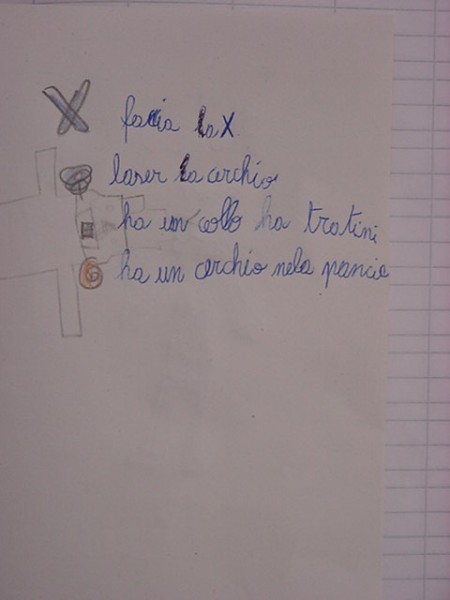 facia La X
laser La cerchio
ha un collo ha tratini
ha un cerchio nela pancia